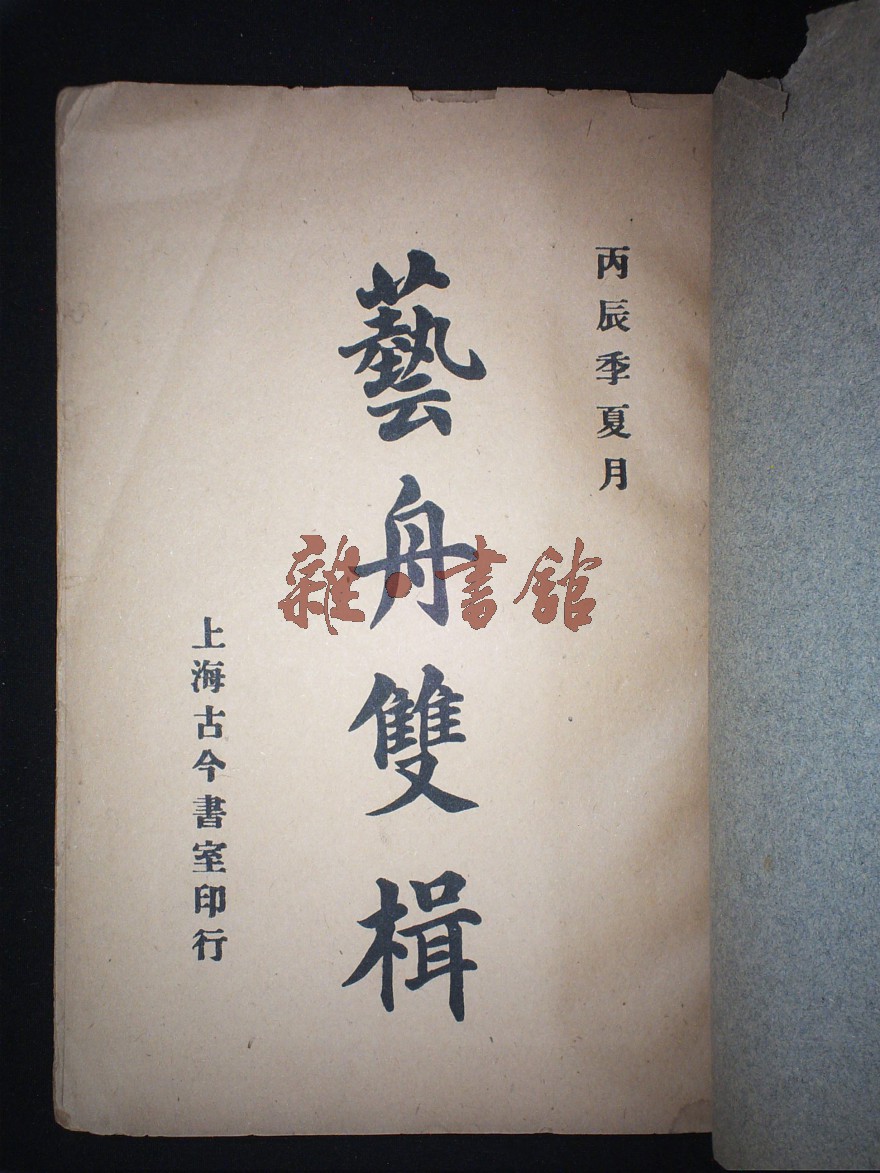 丙辰季夏月
藝舟雙楫
上海古今書室印行
雜·書館